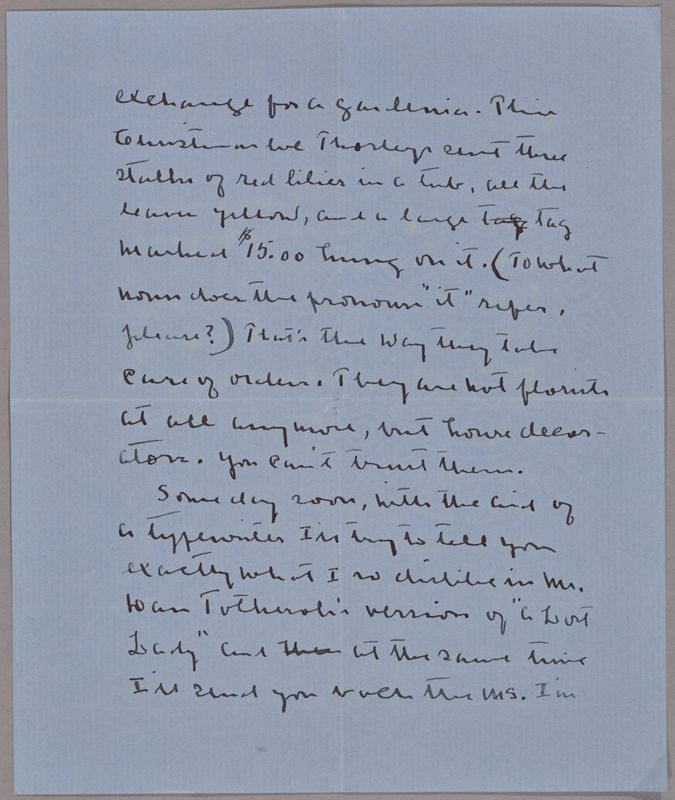 exchange for a gardenia. This
Christmas eve Thorleys sent three
stalks of red lilies in a tub, all the
leaves yellow, and a large tag tag
marked $15.00 hung on it. (To what
noun does the pronoun "it" refer,
please?) That's the way they take
care of orders. They are not florists
at all anymore, but house decor-
ators. You can't trust them.
Some day soon, with the aid of
a typewriter I'll try to tell you
exactly what I so dislike in Mr.
Dan Totheroh's version of "a Lost
Lady" and then at the same time
I'll send you back the ms. I'm